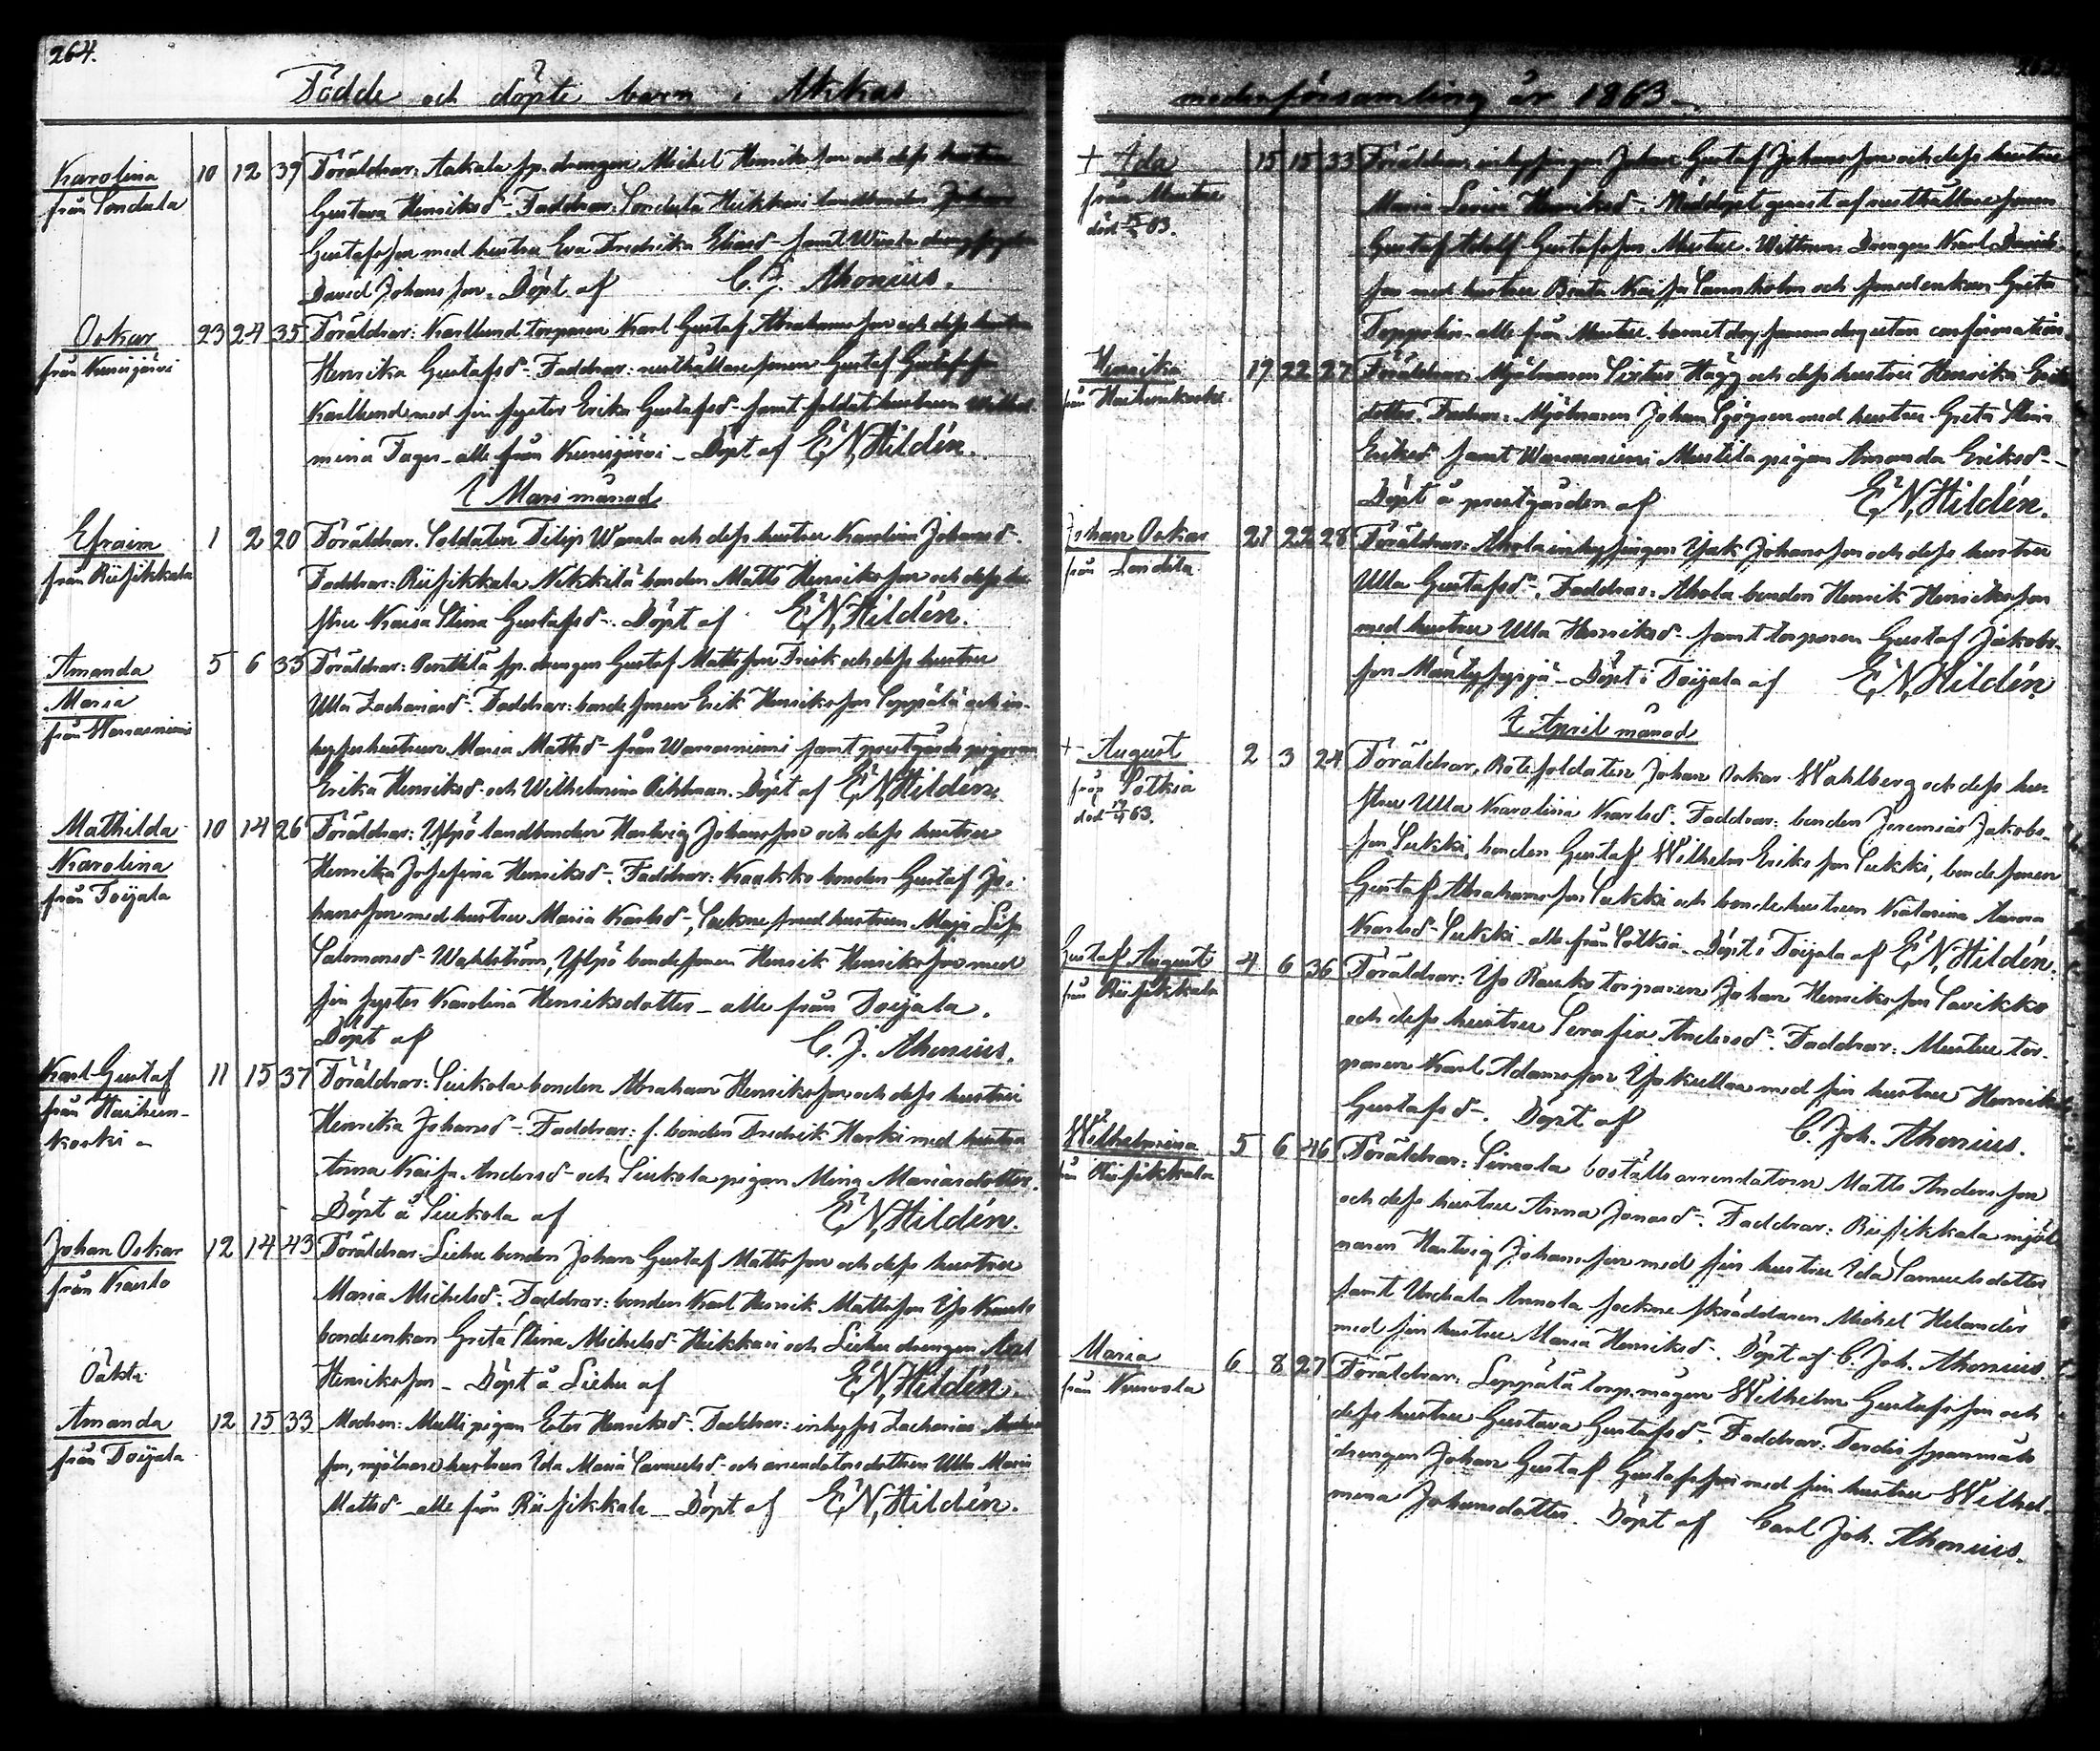 264.
Födde och döpte barn i Akkas
Karolina
från Sondala
10 12 39 Föräldrar: Aakala sp. drengen Michel Henriksson och dess hustru
Gustava Henriksd. Faddrar: Sondala Heikkari landbonden Johan
Gustafsson med hustru Eva Fredrika Eliasd. samt
David Johansson. Döpt af C. J. Ahonius.
Oskar
från Kurisjärvi
23 24 35 Föräldrar: Karllund torparen Karl Gustaf Abrahamsson och dess hustru
Henrika Gustafsd. Faddrar: rusthållaresonen Gustaf Gustafsson
Karllund med sin syster Erika Gustafsd. samt soldat hustrun Wilhel-
mina Fager. alle från Kurisjärvi. Döpt af E. N. Hildén.
I Mars månad
Efraim
från Riisikkala
1 2 20 Föräldrar. Soldaten Filip Warala och dess hustru Karolina Johansd.
Faddrar: Riisikkala Nekkilä bonden Matts Henriksson och dess hu-
stru Kaisa Stina Gustafsd. Döpt af E. N. Hildén.
Amanda
Maria
5 6 33 Föräldrar: Penttilä sp. drengen Gustaf Mattsson Frisk och dess hustru
Ulla Zachariasd. Faddrar: bondesonen Erik Henriksson Seppälä och in-
hyseshustrun Maria Mattsd. från Warrasniemi samt prestgårds pigorna
Erika Henriksd. och Wilhelmina Pihlman. Döpt af E. N. Hildén.
Mathilda
Karolina
från Toijala
10 14 26 Föräldrar: Ylpö landbonden Hartvig Johansson och dess hustru
Henrika Josefina Henriksd. Faddrar: Kaakko bonden Gustaf Jo-
hansson med hustru Maria Karlsd., Sockne smed hustrun Maja Lisa
Salomonsd. Wahlström, Ylpö bondesonen Henrik Henriksson med
sin syster Karolina Henriksdotter. alle från Toijala.
Döpt af C. J. Ahonius.
Karl Gustaf
från Haihun-
koski
11 15 37 Föräldrar: Siukola bonden Abraham Henriksson och dess hustru
Henrika Johansd. Faddrar: f. bonden Fredrik Harki med hustru
Anna Kaisa Andersd. och Siukola pigan Mina Mariasdotter.
Döpt å Siukola af E. N. Hildén.
Johan Oskar
från Kanto
12 14 43 Föräldrar. Liehu bonden Johan Gustaf Mattsson och dess hustru
Maria Michelsd. Faddrar: bonden Karl Henrik Mattsson Yso
bondeenkan Greta Stina Michelsd. Heikkari och Liehu drengen
Henriksson. Döpt å Liehu af E. N. Hildén.
Oäkta
Amanda
från Toijala
12 15 33 Modren: Mulli pigan Ester Henriksd. Faddrar: inhyses Zacharias
son, mjölnare hustrun Ida Maria Samuelsd. och arrendatorsdottren Ulla Maria
Mattsd. alle från Riisikkala. Döpt af E. N. Hildén.
moderförsamling år 1863.
+ Ida
från Mustue
död 63.
15 15 33 Föräldrar inhysingen Johan Gustaf Johansson och dess hustru
Maria Lovisa Henriksd. Nöddöpt genast af rusthållaresonen
Gustaf Adolf Gustafsson Mustue. Wittnen: Drengen Karl Davids-
son med hustru Beata Kaisa och smedenkan Greta
Toppelin. alle från Mustue. barnet dog samma dag utan confirmation.
Henrika
19 22 27 Föräldrar: Mjölnaren Sixtus Hägg och dess hustru Henrika Eriks
dotter. Fadrar: Mjölnaren Johan Sjögren med hustru Greta Stina
Eriksd. samt Warrasniemi Mustila pigan Amanda Eriksd.
Döpt å prestgården af E. N. Hildén.
Johan Oskar
från
21 22 28 Föräldrar: Ahola inhysingen Isak Johansson och dess hustru
Ulla Gustafsd. Faddrar: Ahola bonden Henrik Henriksson
med hustru Ulla Henriksd. samt torparen Gustaf Jakobs-
son. Döpt i Toijala af E. N. Hildén
I April månad
+ August
från Sotkia
död 19/4 63.
2 3 24 Föräldrar, Rotesoldaten Johan Oskar Wahlberg och dess hu-
stru Ulla Karolina Karlsd. Faddrar: bonden Jeremias Jakobs-
son Sukki, bonden Gustaf Wilhelm Eriksson Sukki, bondesonen
Gustaf Abrahamsson Sukki och bondehustrun Katarina Anna
Karlsd. Sukki. alle från Sotkia. Döpt i Toijala af E. N. Hildén.
Gustaf August
från Riisikkala
4 6 36 Föräldrar: Yso Rausko torparen Johan Henriksson Savikko
och dess hustru Serafia Andersd. Faddrar: Mustue tor-
paren Karl Adamsson Ysokulma med sin hustru Henrika
Gustafsd. Döpt af C. Joh. Ahonius.
Wilhelmina
från Riisikkala
5 6 46 Föräldrar: Sirola boställs arrendatorn Matts Andersson
och dess hustru Anna Jonasd. Faddrar: Riisikkala mjöl
naren Hartvig Johansson med sin hustru Ida Samuelsdotter
samt Urdiala Annola sockne skräddaren Michel Helander
med sin hustru Maria Henriksd. Döpt af C. Joh. Ahonius.
Maria
från
6 8 27 Föräldrar: Seppälä torp. mågen Wilhelm Gustafsson och
dess hustru Gustava Gustafsd. Faddrar:
drengen Johan Gustaf Gustafsson med sin hustru Wilhel-
mina Johansdotter. Döpt af Carl Joh. Ahonius.